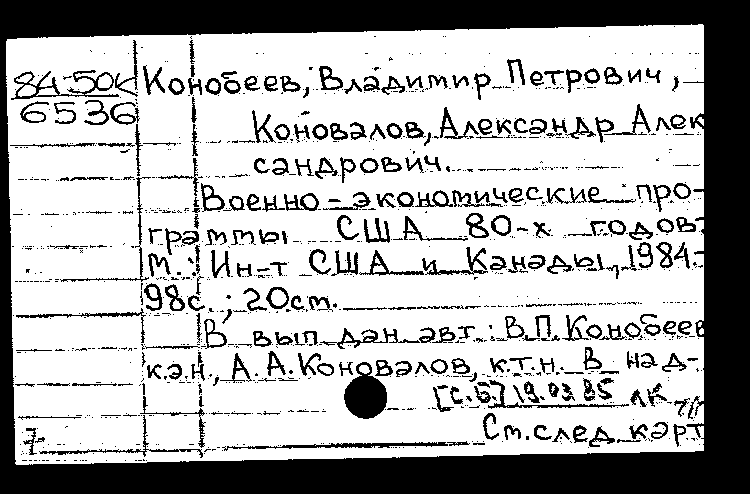 84-50К Конобеев, Владимир Петрович,
6536
Коновалов, Александр Алек
сандрович.
Военно-экономические про-
граммы США 80-х годов.
М.: Ин-т США и Канады, 1984.-
98с.; 20см.
В вып. дан. авт.: В.П.Конобеев
к.э.н., А.А.Коновалов, к.т.н. В над-
[С.Б.] 19.03.85 ЛК
7-
См.след.карт